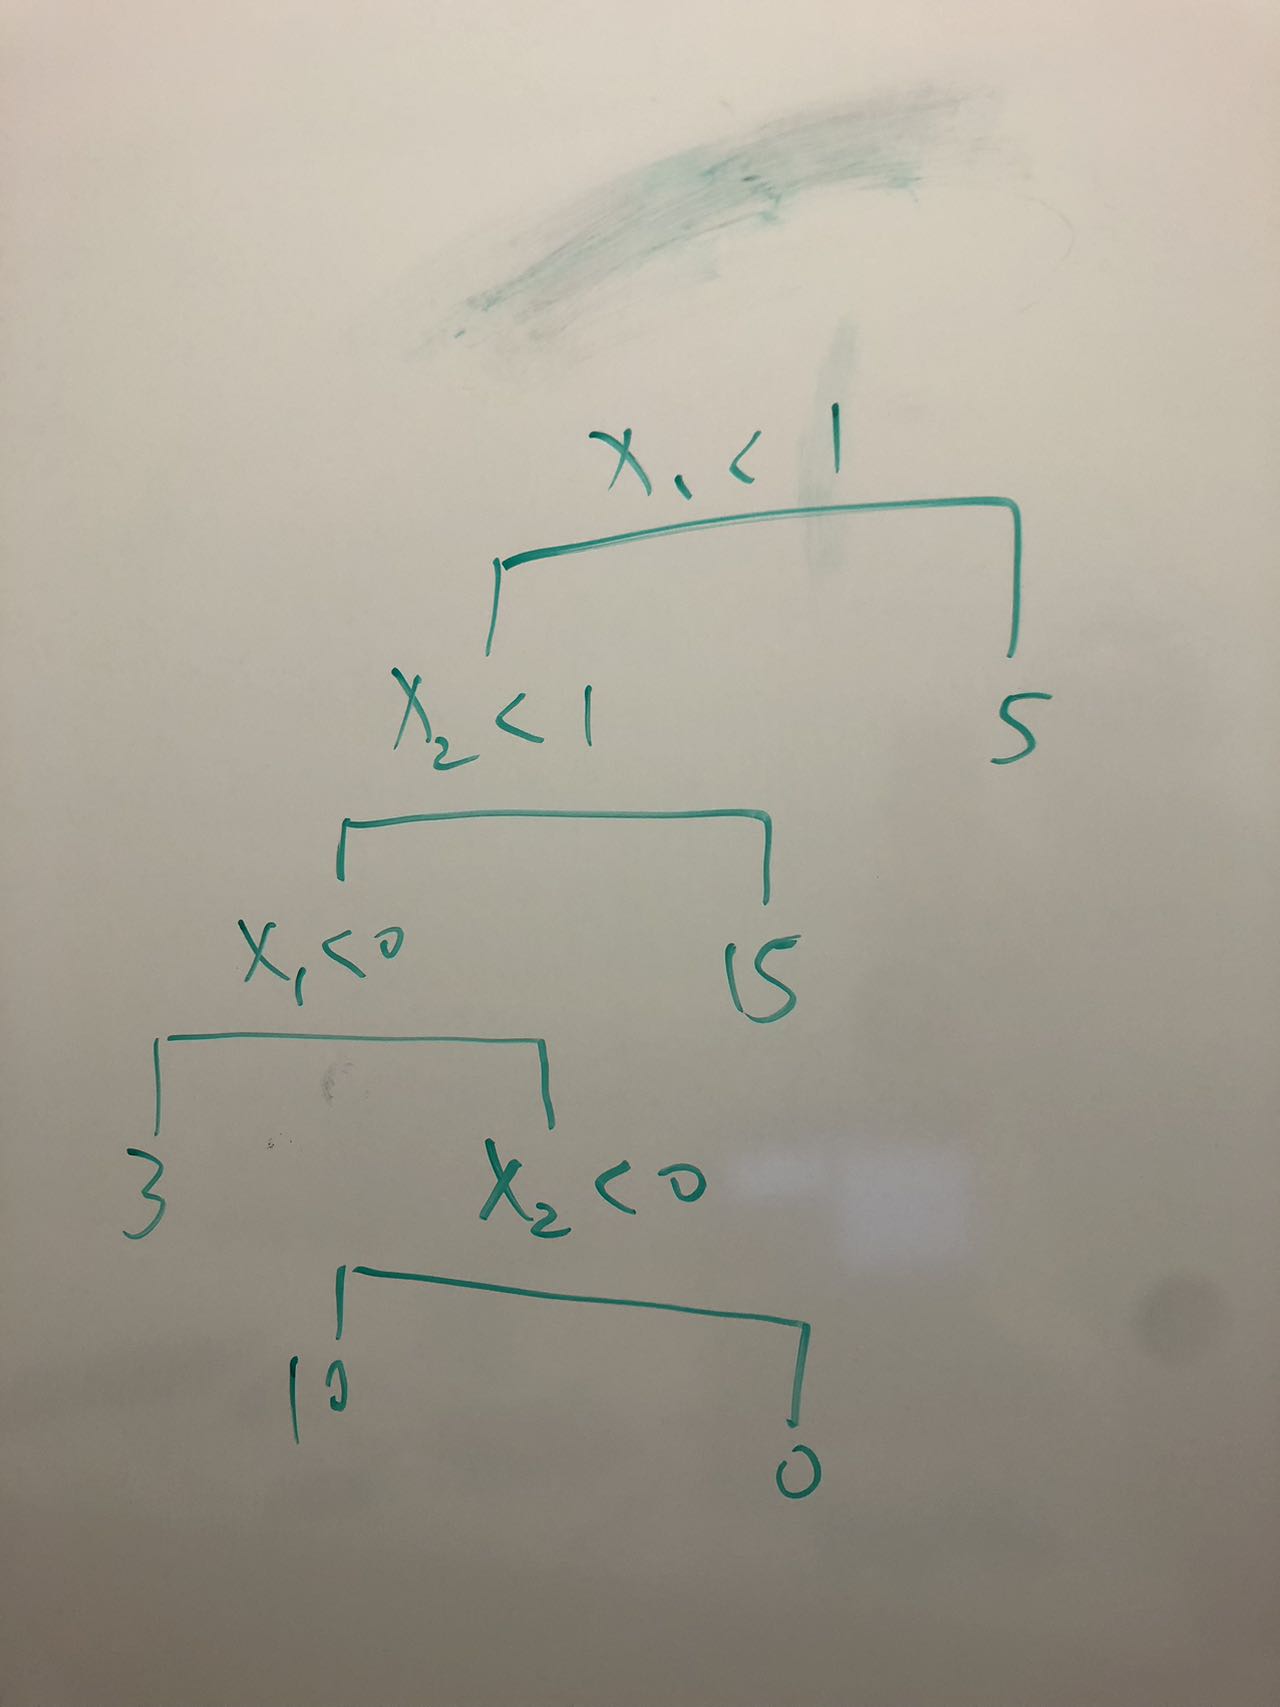 X₁ < 1
X₂ < 1 5
X₁ < 0 15
3 X₂ < 0
10
0